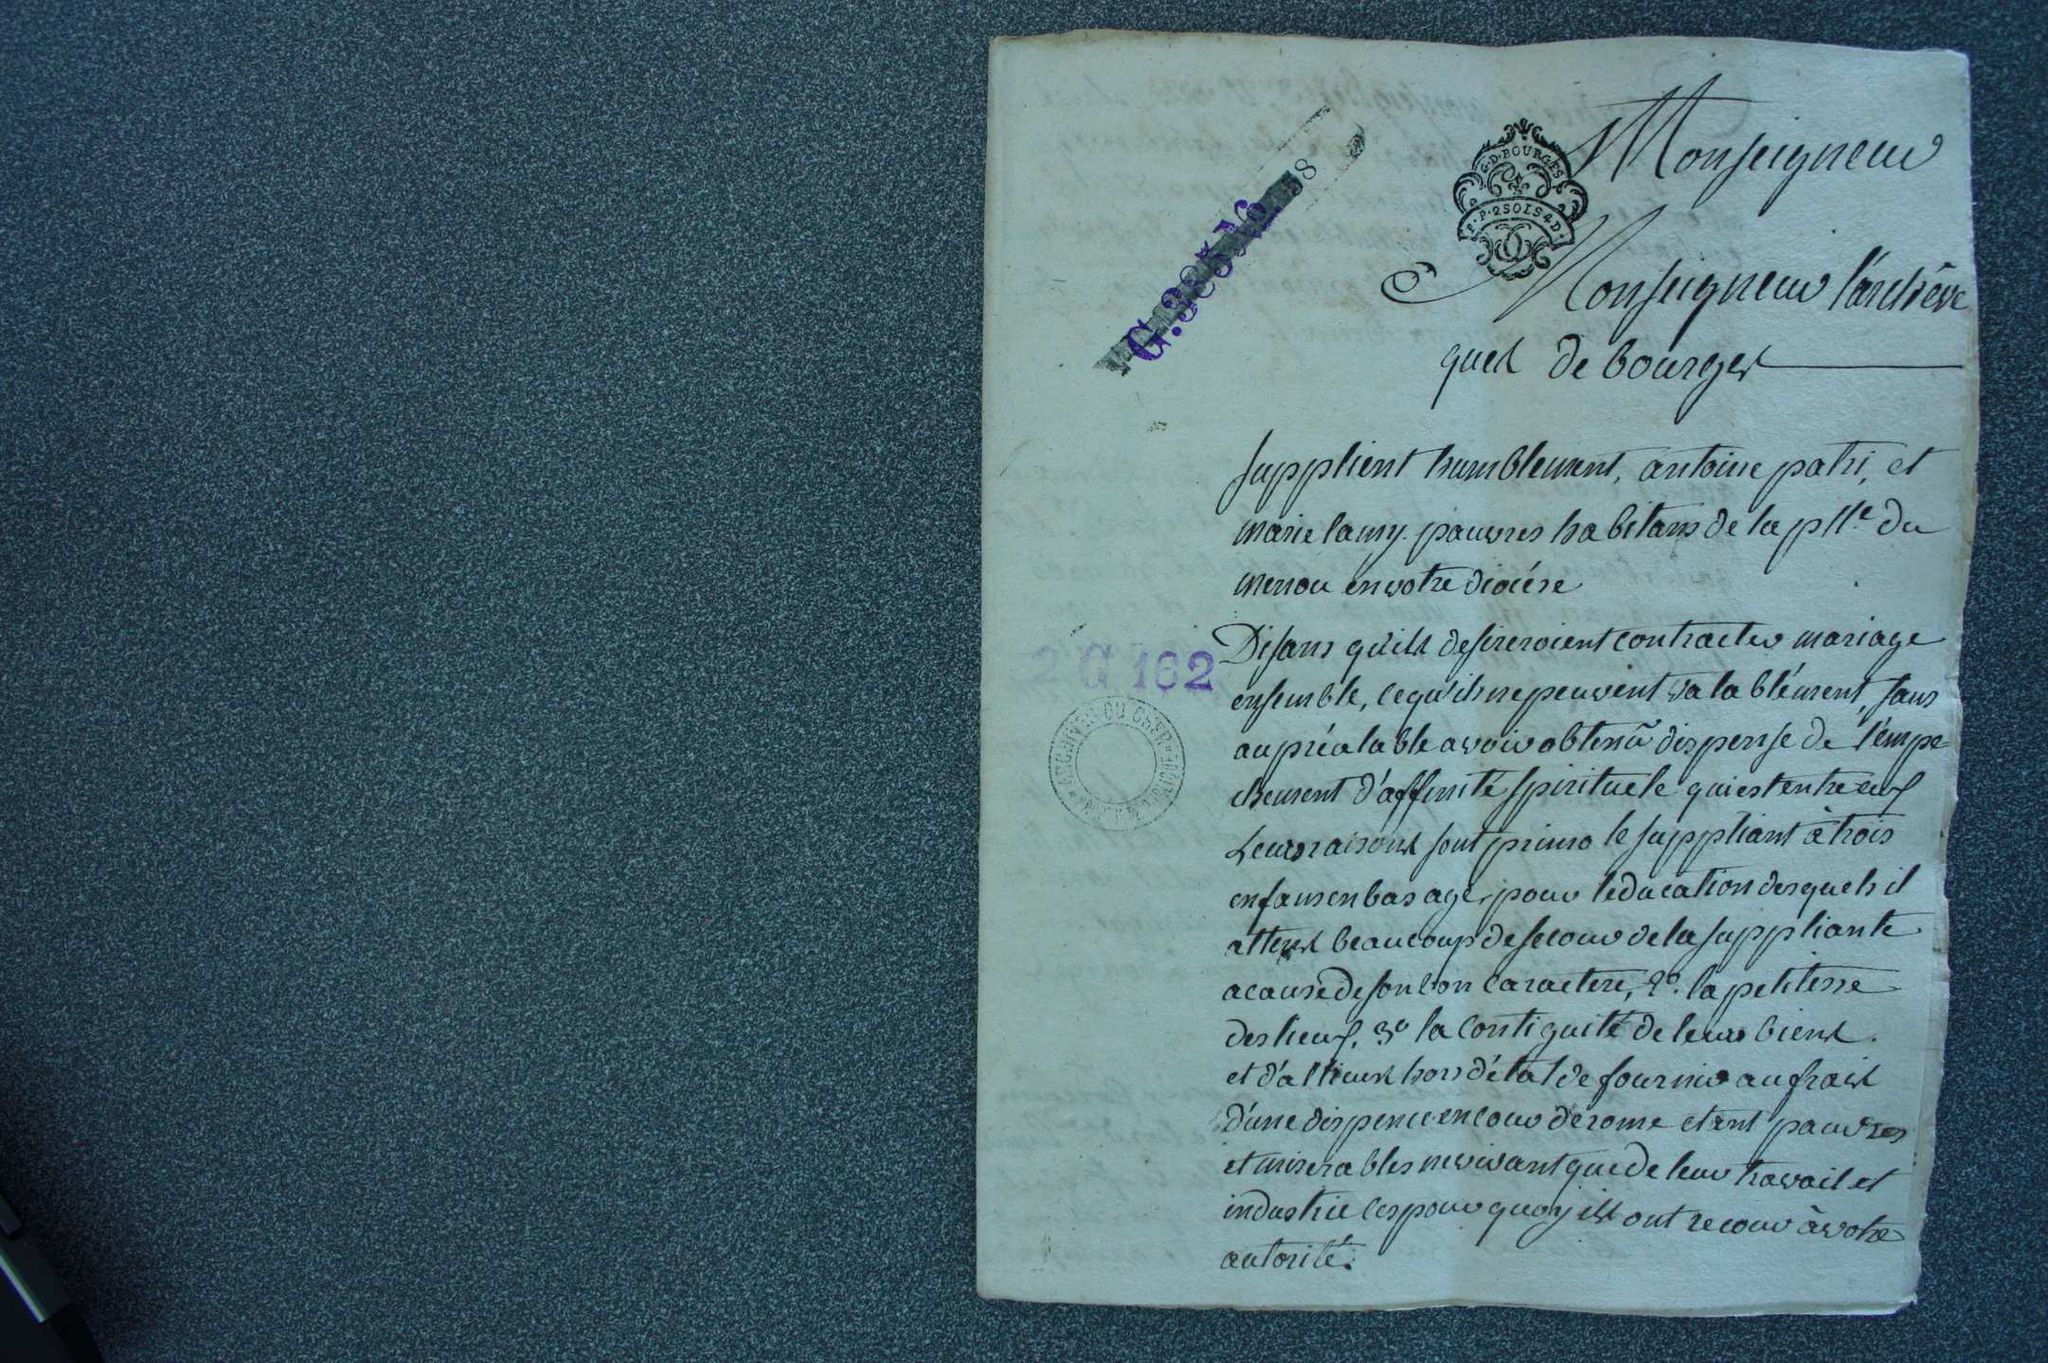 G. D. BOURGES
P. P. 2 SOLS 4 D.
Monseigneur
Monseigneur l'archêve
ques de bourges
supplient humblement, antoine patri, et
marie lamy pauvres habitans de la psse du
menou en votre diocése
Disans qu'ils desireroient contracter mariage
ensemble, ce qu'ils ne peuvent valablément, sans
au préalable avoir obtenû dispense de l'empe
chement d'affinité spirituele qui est entre eux
Leurs raisons sont primo le suppliant à trois
enfans en bas age, pour leducation desquels il
attens beaucoup de secour de la suppliante
a cause de son bon caractere, 2o. la petitesse
des lieux, 3o la contiguité de leur biens
et d'allieurs hors d'état de fournir au frais
d'une dispence en cour de rome etant pauvres
et miserables ne vivant que de leur travail et
industrie ces pour quoy ils ont recour à votre
autorité.
2 G 162
ARCHIVES DU CHER